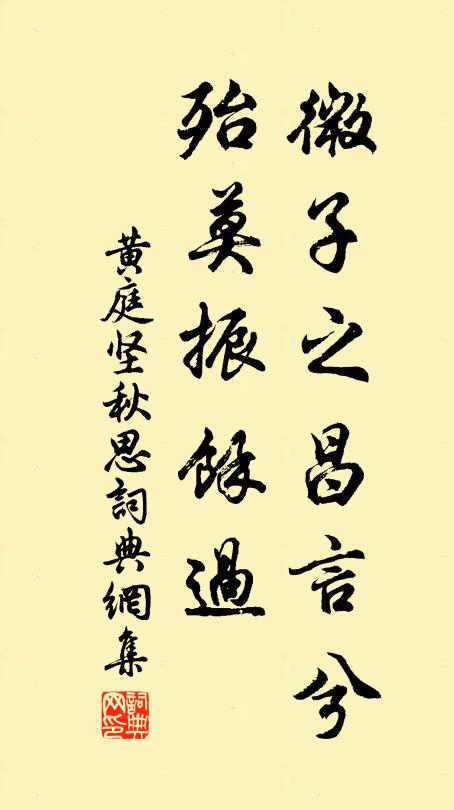 微子之昌言兮
殆莫振餘過
黄庭坚秋思詞典網集
詞典網印